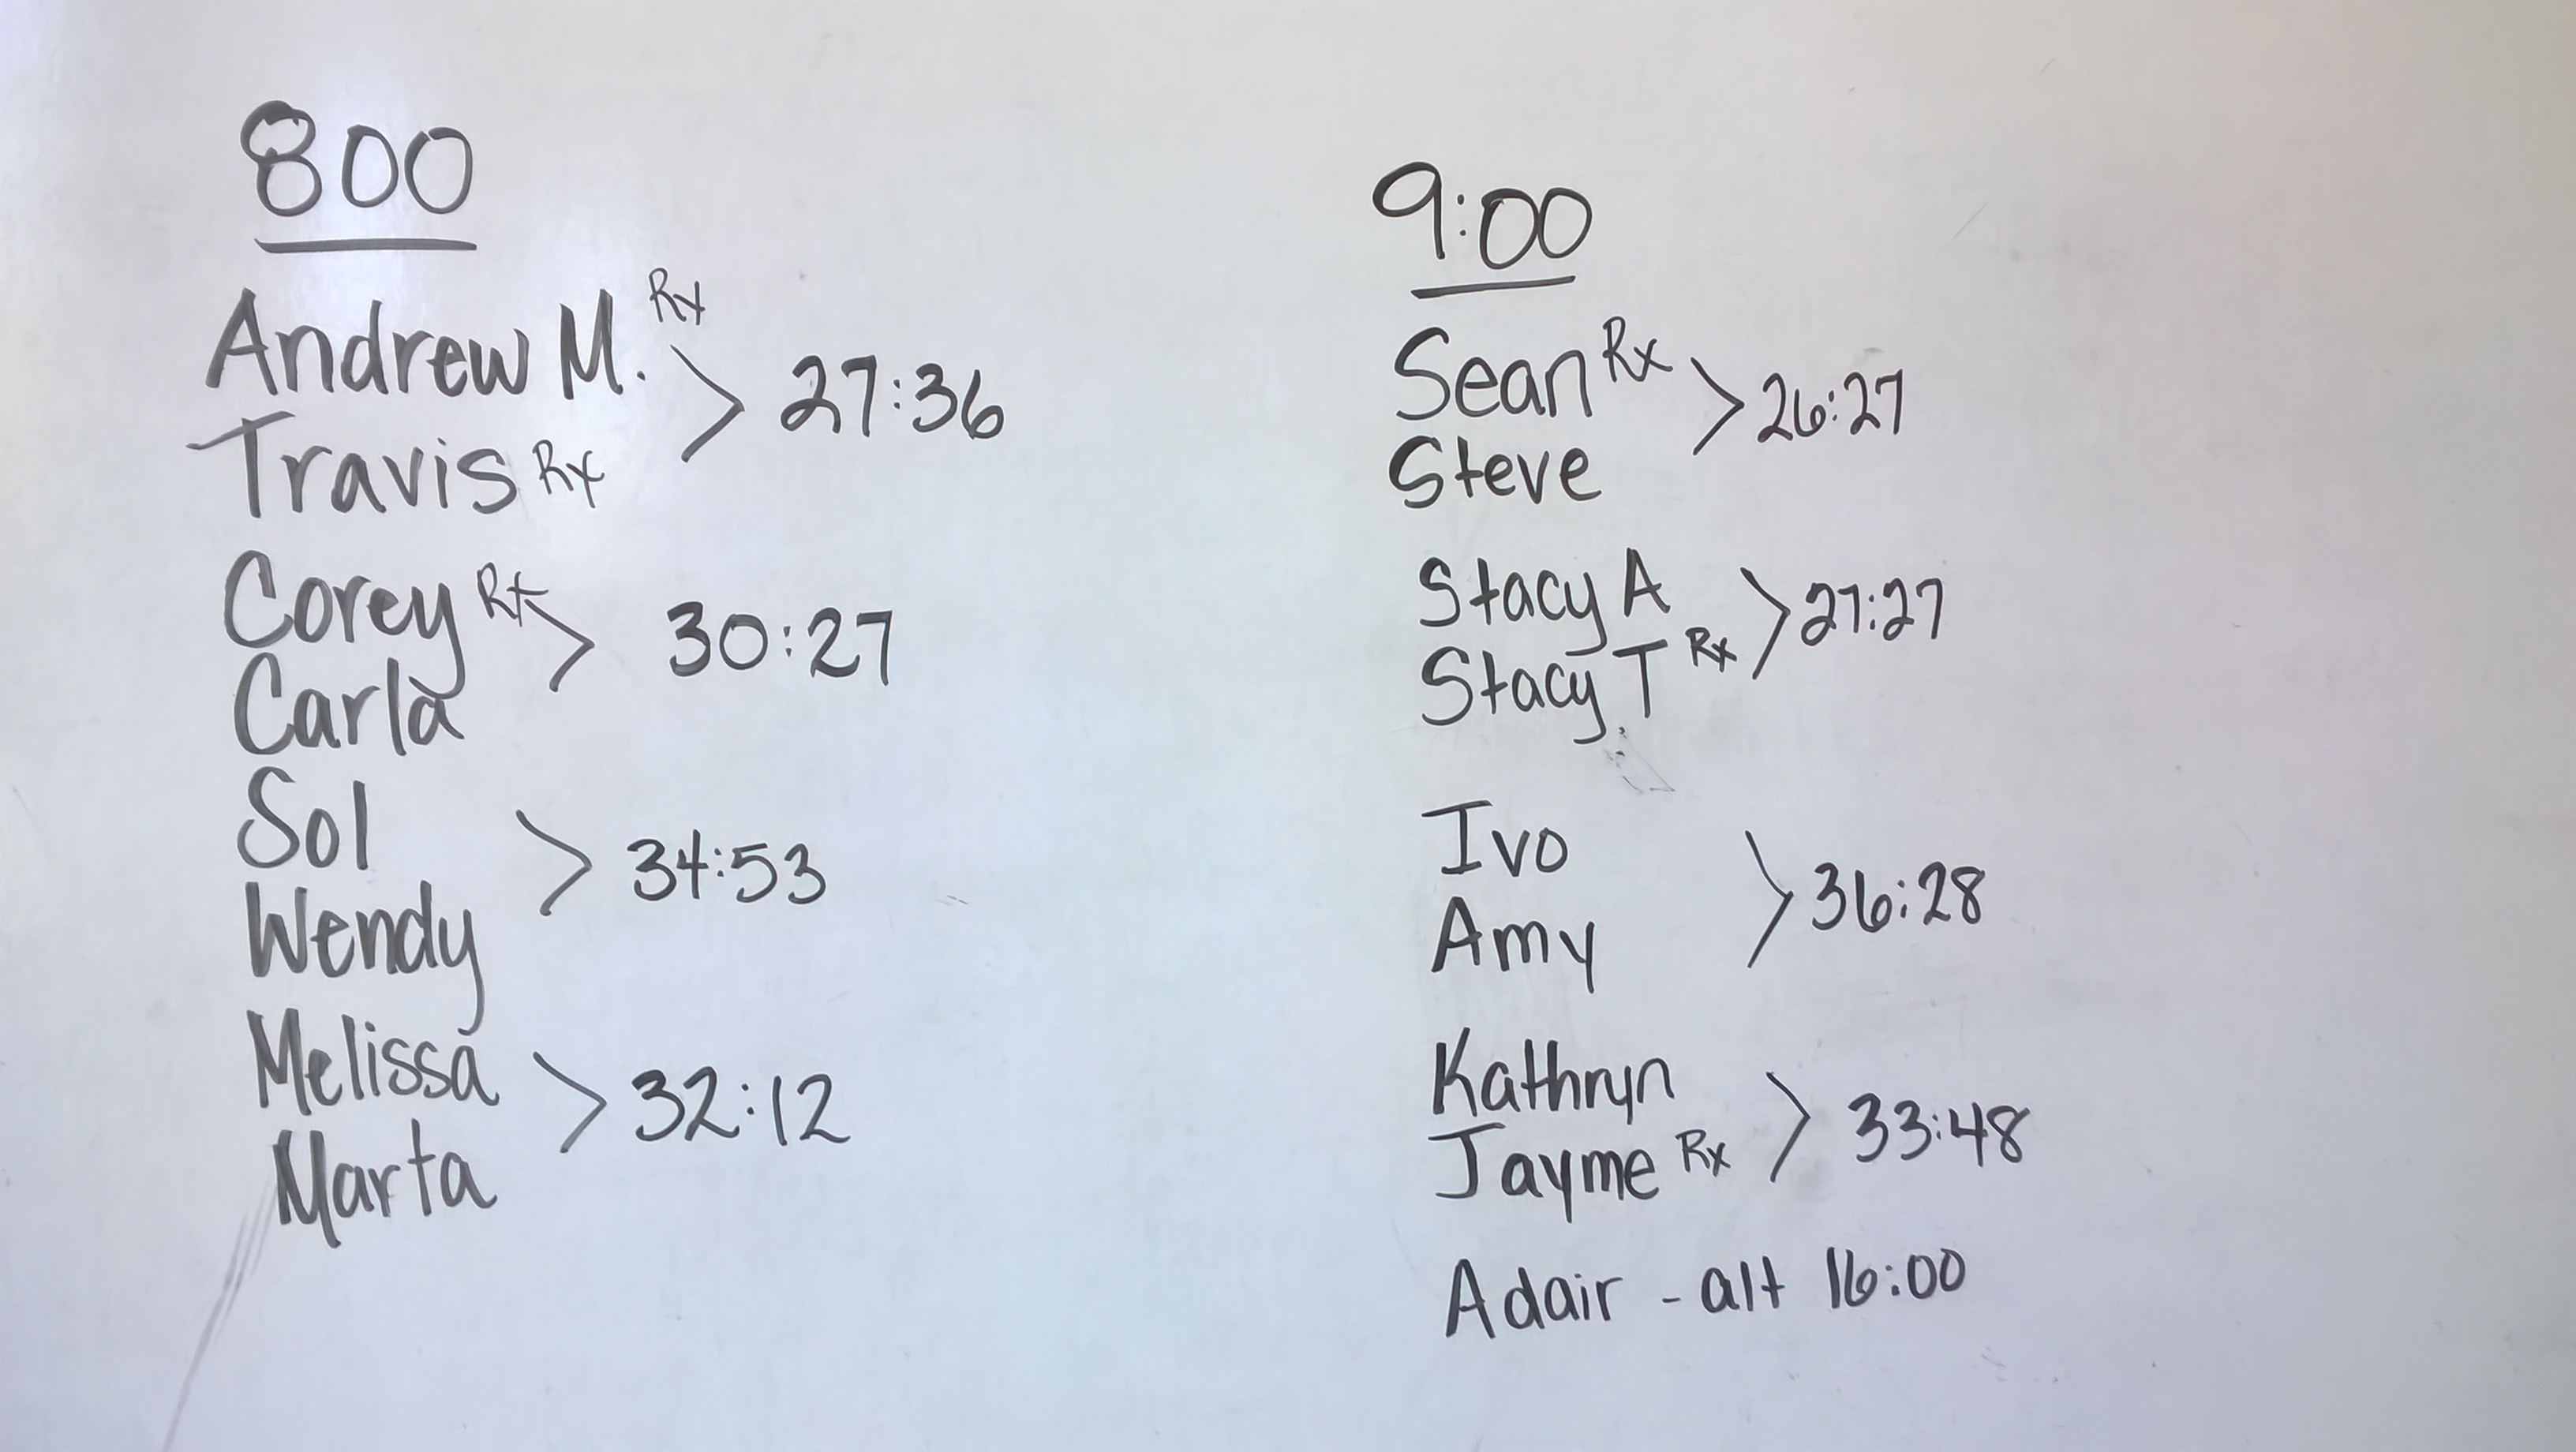 800
Andrew M. Rx
Travis Rx
> 27:36
Corey Rx
Carla
> 30:27
Sol
Wendy
> 34:53
Melissa
Marta
> 32:12
9:00
Sean Rx
Steve
> 26:27
Stacy A
Stacy T Rx
> 27:27
Ivo
Amy
> 36:28
Kathryn
Jayme Rx
> 33:48
Adair - alt 16:00